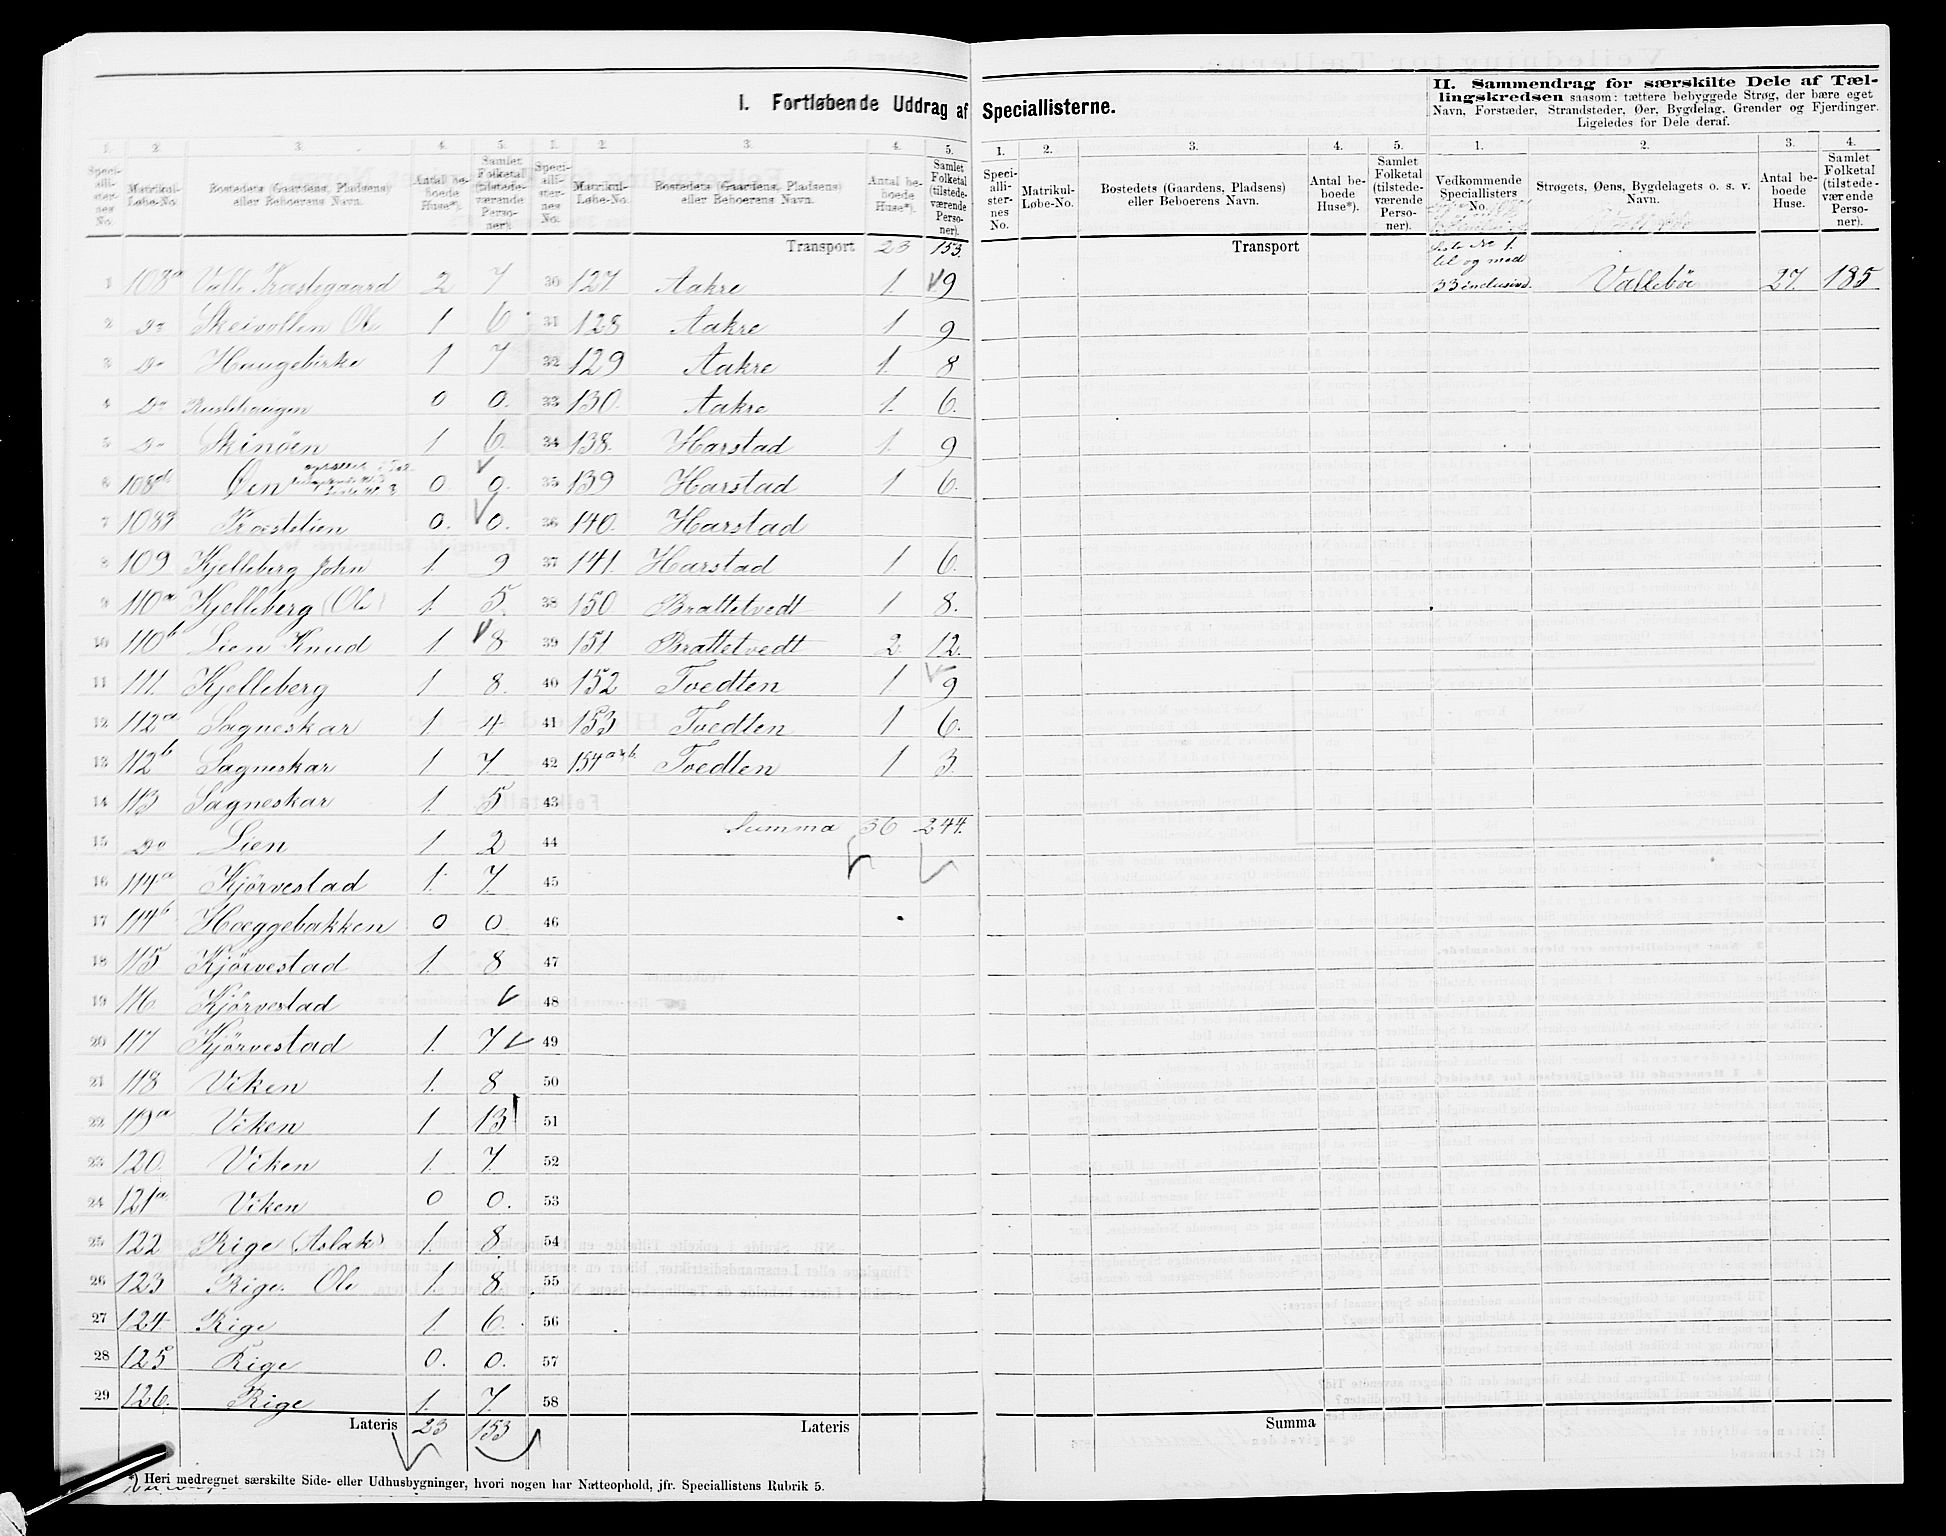 I. Fortløbende Uddrag af Speciallisterne.
II. Sammendrag for særskilte Dele af Tællingskredsen saasom: tættere bebyggede Strøg, der bære eget
Navn, Forstæder, Strandsteder, Øer, Bygdelag, Grender og Fjerdinger.
Ligeledes for Dele deraf.
1. 2. 3. 4. 5. 1. 2. 3. 4. 5. 1. 2. 3. 4. 5. 1. 2. 3. 4.
Speciallisternes No. Matrikul-Løbe-No. Bostedets (Gaardens, Pladsens) eller Beboerens Navn. Antal beboede Huse*). Samlet Folketal (tilstedeværende Personer).
Speciallisternes No. Matrikul-Løbe-No. Bostedets (Gaardens, Pladsens) eller Beboerens Navn. Antal beboede Huse*). Samlet Folketal (tilstedeværende Personer).
Speciallisternes No. Matrikul-Løbe-No. Bostedets (Gaardens, Pladsens) eller Beboerens Navn. Antal beboede Huse*). Samlet Folketal (tilstedeværende Personer).
Vedkommende Speciallisters No. Strøgets, Øens, Bygdelagets o. s. v. Navn. Antal beboede Huse. Samlet Folketal (tilstedeværende Personer).
1 108a Valle Præstegaard 2 7
2 Do Skeivollen Ole 1 6
3 Do Haugebirke 1 7
4 Do 0 0.
5 Do Skinöen 1 6
6 108 Øen 0 0.
7 108 Præstelien 0. 0.
8 109 Kjelleberg John 1. 9
9 110a Kjelleberg (Ole) 1. 5.
10 110b Lien Knud 1 8
11 111. Kjelleberg 1 8.
12 112a Sagneskar 1 4
13 112b Sagneskar 1 7
14 113 Sagneskar 1. 5
15 Do Lien 1 2
16 114a Kjörvestad 1. 7
17 114b Hæggebakken 0 0
18 115 Kjörvestad 1. 8
19 116 Kjörvestad
20 117 Kjörvestad 1. 7
21 118 Viken 1. 8
22 119a Viken 1 13
23 120 Viken 1. 7.
24 121a Viken 0 0.
25 122 Rige (Aslak) 1. 8
26 123 Rige Ole 1. 8
27 124 Rige 1. 6.
28 125 Rige 0. 0.
29 126. Rige 1. 7.
Lateris 23 153
Transport 23 153.
30 127. Aakre 1. 9
31 128 Aakre 1 9
32 129 Aakre 1. 8
33 130. Aakre 1. 6.
34 138. Harstad 1. 9
35 139 Harstad 1 6.
36 140. Harstad
37 141. Harstad 1 6.
38 150 Brattetvedt 1 8.
39 151 Brattetvedt 2 12.
40 152 Tvedten 1 9
41 153 Tvedten 1 6.
42 154 a&b. Tvedten 1 3
43
Summa 36 244.
44
45
46
47
48
49
50
51
52
53
54
55
56
57
58
Lateris
Transport
Summa
Liste No 1.
til og med
33 inclusive. Vallebö 27. 185
*) Heri medregnet særskilte Side- eller Udhusbygninger, hvori nogen har Natteophold, jfr. Speciallistens Rubrik 5.